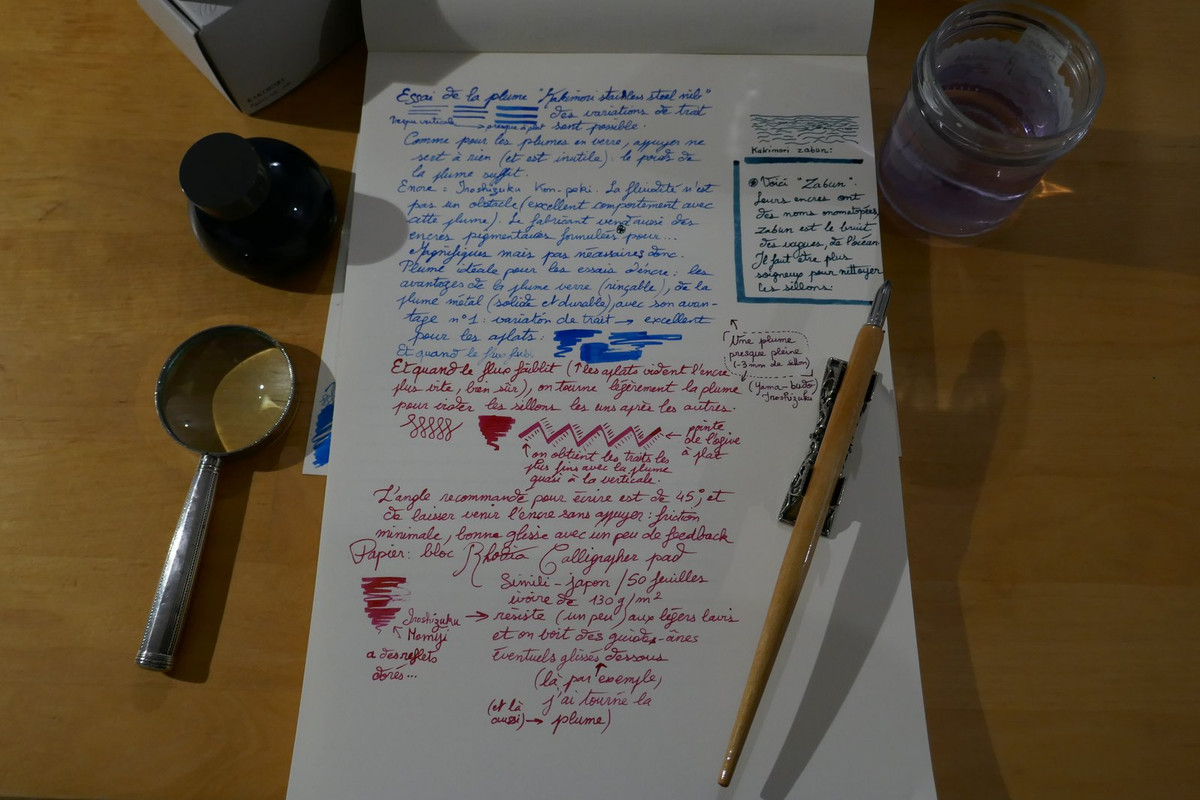 KAKIMORI
Essai de la plume "Kakimori stainless steel nib"
des variations de trait
Presque verticale → presque à plat sont possible.
Comme pour les plumes en verre, appuyer ne
sert à rien (et est inutile) : le poids de
la plume suffit.
Encre = Iroshizuku Kon-peki. La fluidité n'est
pas un obstacle (excellent comportement avec
cette plume). Le fabricant vend aussi des
encres pigmentaires formulées pour...
Magnifiques mais pas nécessaires donc.
Plume idéale pour les essais d'encre : les
avantages de la plume verre (rinçable), de la
plume métal (solide et durable), avec son avan-
tage n°1 : variation de trait → excellent
pour les aplats :
Et quand le flux faib
Et quand le flux faiblit (↑ les aplats vident l'encre
plus vite, bien sûr), on tourne légèrement la plume
pour vider les sillons les uns après les autres.
← pointe
de l'ogive
à plat
↑ on obtient les traits les
plus fins avec la plume
quasi à la verticale.
L'angle recommandé pour écrire est de 45°, et
de laisser venir l'encre sans appuyer : friction
minimale, bonne glisse avec un peu de feedback
Papier : bloc Rhodia Calligrapher pad
Simili-japon / 50 feuilles
ivoire de 130 g/m²
→ résiste (un peu) aux légers lavis
et on voit des guides-ânes
éventuels glissés dessous
(là par exemple,
j'ai tourné la
(et là
aussi) → plume)
Iroshizuku
Momiji
a des reflets
dorés...
Kakimori zabun:
Voici "Zabun".
Leurs encres ont
des noms onomatopées,
Zabun est le bruit
des vagues, de l'océan
Il faut être plus
soigneux pour nettoyer
les sillons.
Une plume
presque pleine
(-3 mm de sillon)
(Yama-budo
Iroshizuku)